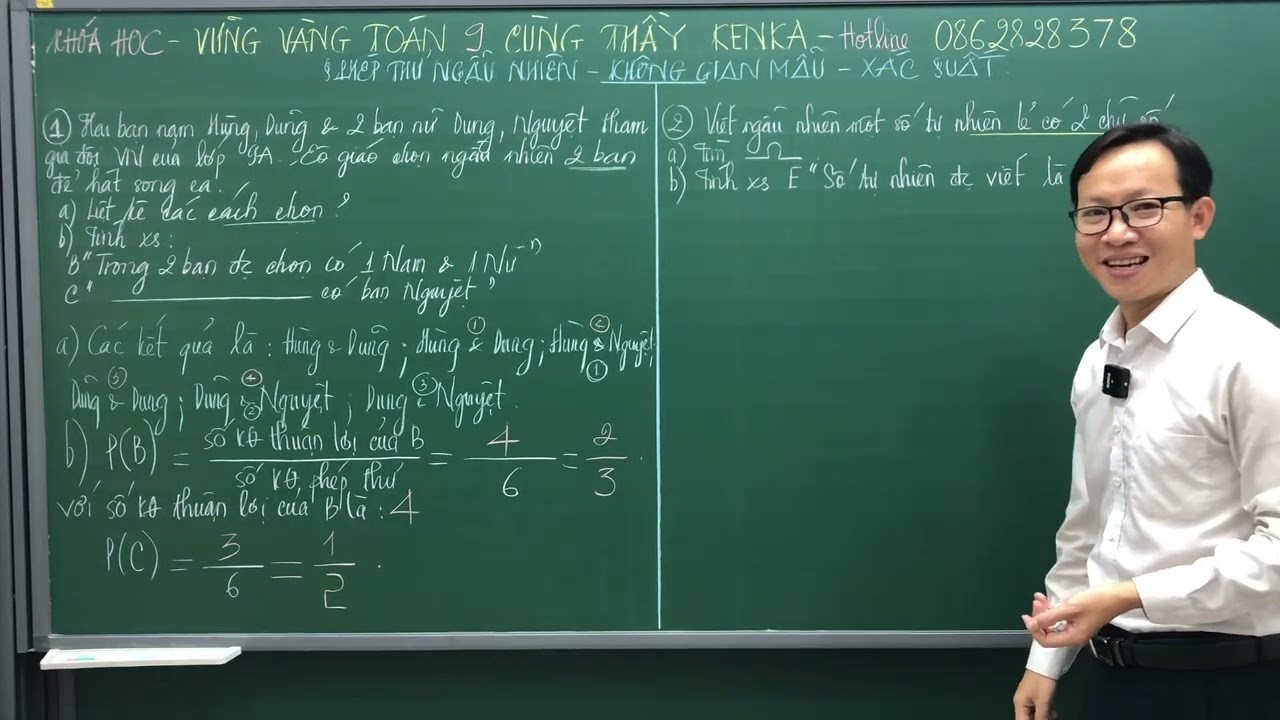 KHÓA HỌC - VỮNG VÀNG TOÁN 9 CÙNG THẦY KENKA - Hotline 0862828378
§ PHÉP THỬ NGẪU NHIÊN - KHÔNG GIAN MẪU - XÁC SUẤT
① Hai bạn nam Hùng, Dũng & 2 bạn nữ Dung, Nguyệt tham
gia đội VN của lớp 9A. Cô giáo chọn ngẫu nhiên 2 bạn
để hát song ca.
a) Liệt kê các cách chọn ?
b) Tính xs :
B "Trong 2 bạn đc chọn có 1 Nam & 1 Nữ"
C " ________ có bạn Nguyệt"
a) Các kết quả là : Hùng & Dũng ; Hùng & Dung ; Hùng & Nguyệt ;
① ② ①
Dũng & Dung ; Dũng & Nguyệt ; Dung & Nguyệt .
③ ④ ② ③
b) P(B) = số KQ thuận lợi của B / số KQ phép thử = 4/6 = 2/3 .
với số KQ thuận lợi của B là : 4
P(C) = 3/6 = 1/2 .
② Viết ngẫu nhiên một số tự nhiên lẻ có 2 chữ số
a) Tìm Ω
b) Tính xs E "Số tự nhiên đc viết là